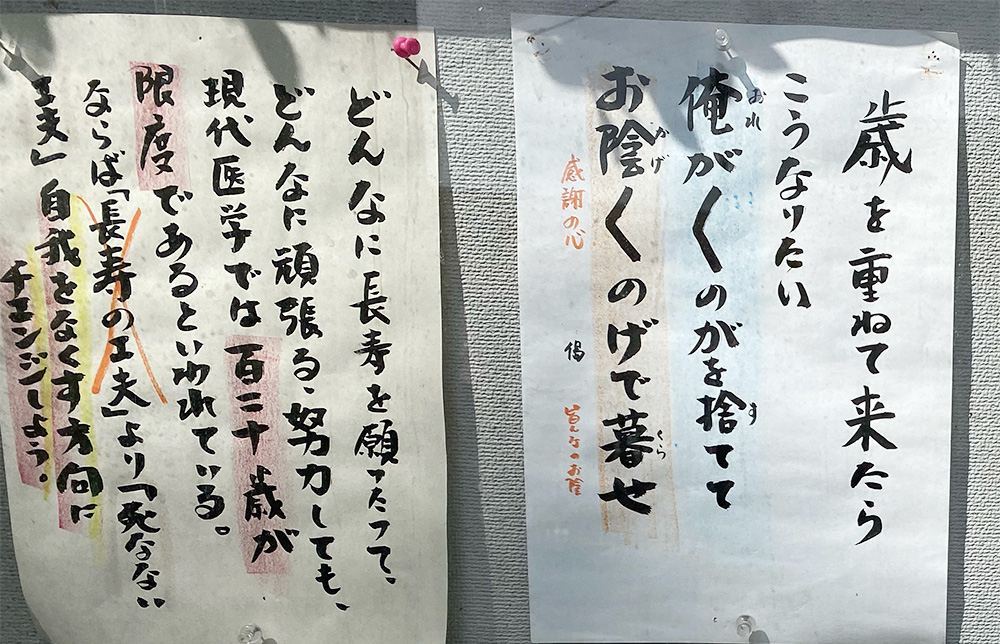 歳を重ねて来たら
こうなりたい
俺が〱のがを捨てて
おれ
す
お陰〱のげで暮せ
かげ
くら
感謝の心
皆んなのお陰
どんなに長寿を願ったって、
どんなに頑張る、努力しても、
現代医学では百二十歳が
限度であるといわれている。
ならば「長寿の工夫」より「死なない
工夫」自我をなくす方向に
チエンジしよう。